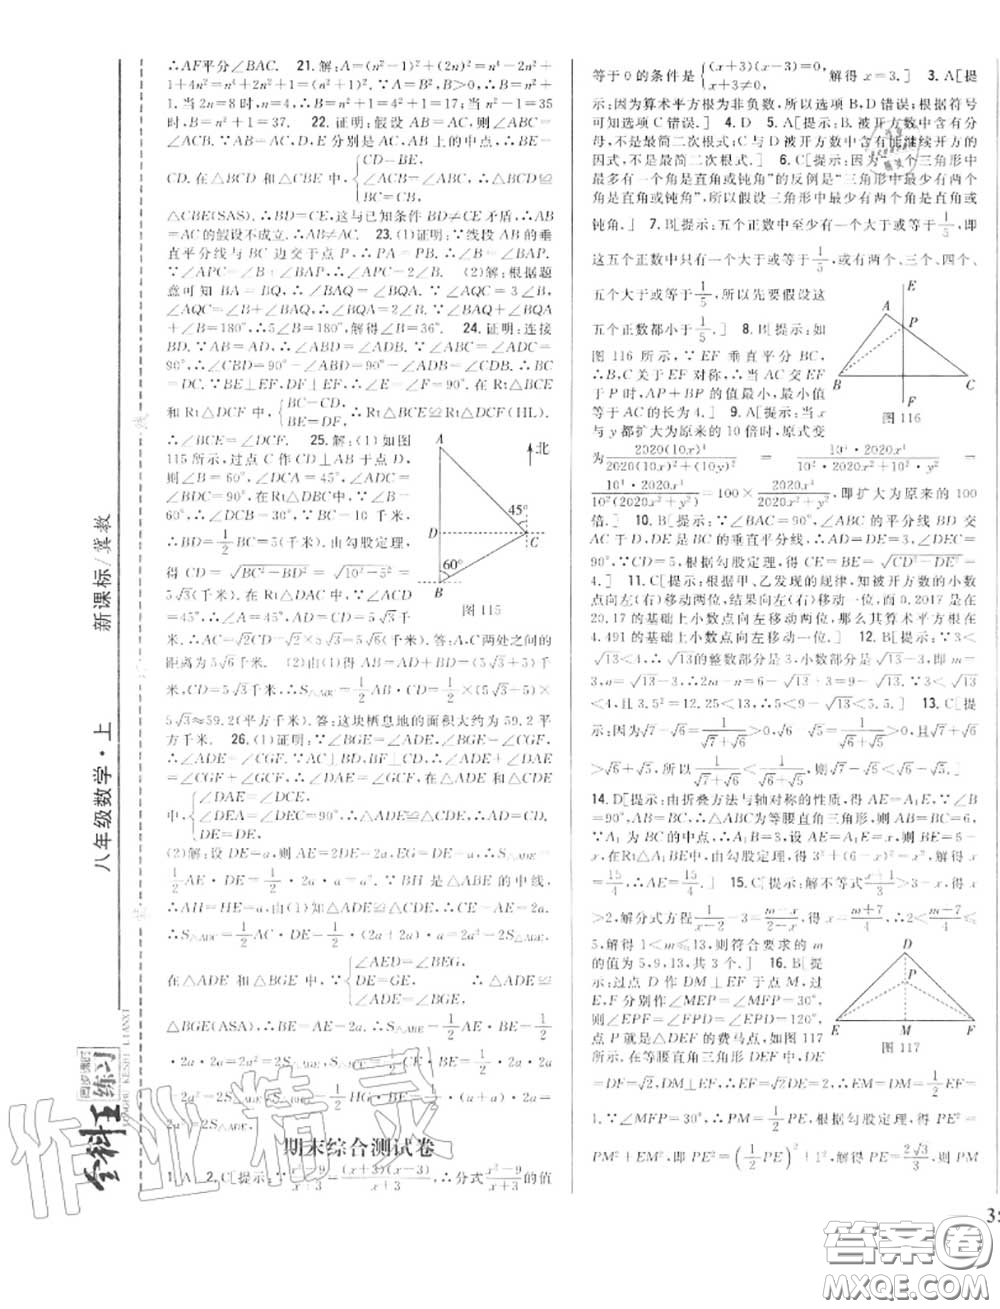 ∴AF平分∠BAC. 21.解:A=(n²-1)²+(2n)²=n⁴-2n²+
1+4n²=n⁴+2n²+1=(n²+1)². ∵A=B²,B>0,∴B=n²+
1.当2n=8时,n=4,∴B=n²+1=4²+1=17;当n²-1=35
时,B=n²+1=37. 22.证明:假设AB=AC,则∠ABC=
∠ACB. ∵AB=AC,D,E分别是AC,AB上的中点,∴BE=
CD.在△BCD和△CBE中,{CD=BE, ∠ACB=∠ABC, BC=CB, ∴△BCD≌
△CBE(SAS).∴BD=CE,这与已知条件BD≠CE矛盾,∴AB
=AC的假设不成立.∴AB≠AC. 23.(1)证明:∵线段AB的垂
直平分线与BC边交于点P,∴PA=PB,∴∠B=∠BAP.
∵∠APC=∠B+∠BAP,∴∠APC=2∠B. (2)解:根据题
意可知BA=BQ,∴∠BAQ=∠BQA. ∵∠AQC=3∠B,
∠AQC=∠B+∠BAQ,∴∠BQA=2∠B. ∵∠BAQ+∠BQA
+∠B=180°,∴5∠B=180°,解得∠B=36°. 24.证明:连接
BD. ∵AB=AD,∴∠ABD=∠ADB. ∵∠ABC=∠ADC=
90°,∴∠CBD=90°-∠ABD=90°-∠ADB=∠CDB. ∴BC=
DC. ∵BE⊥EF,DF⊥EF,∴∠E=∠F=90°.在Rt△BCE
和Rt△DCF中,{BC=CD, BE=DF, ∴Rt△BCE≌Rt△DCF(HL).
∴∠BCE=∠DCF. 25.解:(1)如图
115所示,过点C作CD⊥AB于点D,
则∠B=60°,∠DCA=45°,∠ADC=
∠BDC=90°,在Rt△DBC中,∵∠B=
60°,∴∠DCB=30°.∵BC=10千米,
∴BD=1/2BC=5(千米).由勾股定理,
得CD=√(BC²-BD²)=√(10²-5²)=
5√3(千米).在Rt△DAC中,∵∠DCA
=45°,∴∠A=45°,AD=CD=5√3千
米.∴AC=√2CD=√2×5√3=5√6(千米).答:A,C两处之间的
距离为5√6千米. (2)由(1)得AB=AD+BD=(5√3+5)千
米,CD=5√3千米,∴S△ABC=1/2AB·CD=1/2×(5√3+5)×
5√3≈59.2(平方千米).答:这块栖息地的面积大约为59.2平方千
米. 26.(1)证明:∵∠BGE=∠ADE,∠BGE=∠CGF,
∴∠ADE=∠CGF. ∵AC⊥BD,BF⊥CD,∴∠ADE+∠DAE
=∠CGF+∠GCF,∴∠DAE=∠GCF,在△ADE和△CDE
中,{∠DAE=∠DCE, ∠DEA=∠DEC=90°, DE=DE, ∴△ADE≌△CDE,∴AD=CD.
(2)解:设DE=a,则AE=2DE=2a,EG=DE=a,∴S△ADE=
1/2AE·DE=1/2·2a·a=a². ∵BH是△ABE的中线,
∴AH=HE=a,由(1)知△ADE≌△CDE,∴CE=AE=2a.
∴S△ADC=1/2AC·DE=1/2·(2a+2a)·a=2a²=2S△ADE,
在△ADE和△BGE中,∵{∠AED=∠BEG, DE=GE, ∠ADE=∠BGE, ∴△ADE≌
△BGE(ASA).∴BE=AE=2a.∴S△ABE=1/2AE·BE=1/2
·2a·2a=2a²=2S△ADE,S△BCE=1/2CE·BE=1/2·2a·
2a=2a²=2S△ADE
=2S△ADE.
期末综合测试卷
1.A 2.C[提示:∵(x²-9)/(x+3)=(x+3)(x-3)/(x+3),∴分式(x²-9)/(x+3)的值
等于0的条件是{(x+3)(x-3)=0, x+3≠0, 解得x=3.] 3.A[提
示:因为算术平方根为非负数,所以选项B,D错误;根据符号
可知选项C错误.] 4.D 5.A[提示:B.被开方数中含有分
母,不是最简二次根式;C与D被开方数中含有能继续开方的
因式,不是最简二次根式.] 6.C[提示:因为“一个三角形中
最多有一个角是直角或钝角”的反例是“三角形中最少有两个
角是直角或钝角”,所以假设三角形中最少有两个角是直角或
钝角.] 7.B[提示:五个正数中至少有一个大于或等于1/5,即
这五个正数中只有一个大于或等于1/5,或有两个、三个、四个、
五个大于或等于1/5,所以先要假设这
五个正数都小于1/5.] 8.B[提示:如
图116所示,∵EF垂直平分BC,
∴B,C关于EF对称,∴当AC交EF
于P时,AP+BP的值最小,最小值
等于AC的长为4.] 9.A[提示:当x
与y都扩大为原来的10倍时,原式变
为2020(10x)⁴/(2020(10x)²+(10y)²)=10⁴·2020x⁴/(10²·2020x²+10²·y²)=
10⁴·2020x⁴/(10²(2020x²+y²))=100×2020x⁴/(2020x²+y²),即扩大为原来的100
倍.] 10.B[提示:∵∠BAC=90°,∠ABC的平分线BD交
AC于D,DE是BC的垂直平分线,∴AD=DE=3,∠DEC=
90°,∵CD=5,根据勾股定理,得CE=BE=√(CD²-DE²)=
4.] 11.C[提示:根据甲、乙发现的规律,知被开方数的小数
点向左(右)移动两位,结果向左(右)移动一位,而0.2017是在
20.17的基础上小数点向左移动两位,那么其算术平方根在
4.491的基础上小数点向左移动一位.] 12.C[提示:∵3<
√13<4,∴√13的整数部分是3,小数部分是√13-3,即m=
3,n=√13-3,∴2m-n=6-√13+3=9-√13.∵3<√13
<4,且3.5²=12.25<13,∴3.5<√13<4,] 13.C[提
示:因为√7-√6=1/(√7+√6),√6-√5=1/(√6+√5),√7+√6
>√6+√5,所以1/(√7+√6)<1/(√6+√5),则√7-√6<√6-√5.]
14.D[提示:由折叠方法与轴对称的性质,得AE=A₁E,∵∠B
=90°,∠A=45°,∴△ABC为等腰直角三角形,则AB=BC=6.
∵A₁为BC的中点,∴A₁B=3,设AE=A₁E=x,则BE=6-
x,在Rt△A₁BE中,由勾股定理,得3²+(6-x)²=x²,解得x=
15/4,∴AE=15/4.] 15.C[提示:解不等式
>2,解分式方程1/(x-2)-3=(m-x)/(2-x),得x=(m+7)/4,∴2<(m+7)/4≤
5,解得1<m≤13,则符合要求的m
的值为5,9,13,共3个.] 16.B[提
示:过点D作DM⊥EF于点M,过
E,F分别作∠MEP=∠MFP=30°,
则∠EPF=∠FPD=∠DPE=120°,
点P就是△DEF的费马点,如图117
所示,在等腰直角三角形DEF中,DE
=DF=√2,DM⊥EF,∴EF=√2DE=2,EM=DM=1/2EF=
1. ∵∠MFP=30°,∴PM=1/2PE.根据勾股定理,得
PM²+EM²=PE²,即PE²=(1/2PE)²+1²,解得PE=2√3/3,则PM
A
45°
D
C
60°
B
北
图115
E
A
P
B
C
F
图116
D
P
E
M
F
图117
八年级数学·上
新课标/冀教
全科王
同步课时
练习
TONGBU KESHI LIANXI
作业精灵
答案卷
MXQE.COM